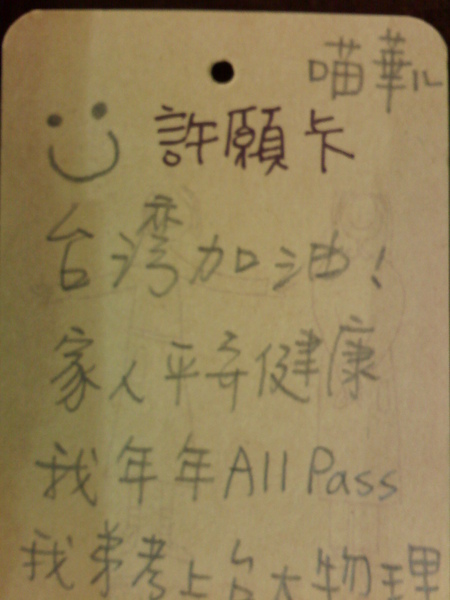 喵華ㄦ
許願卡
台湾加油!
家人平安健康
我年年All Pass
我弟考上台大物理